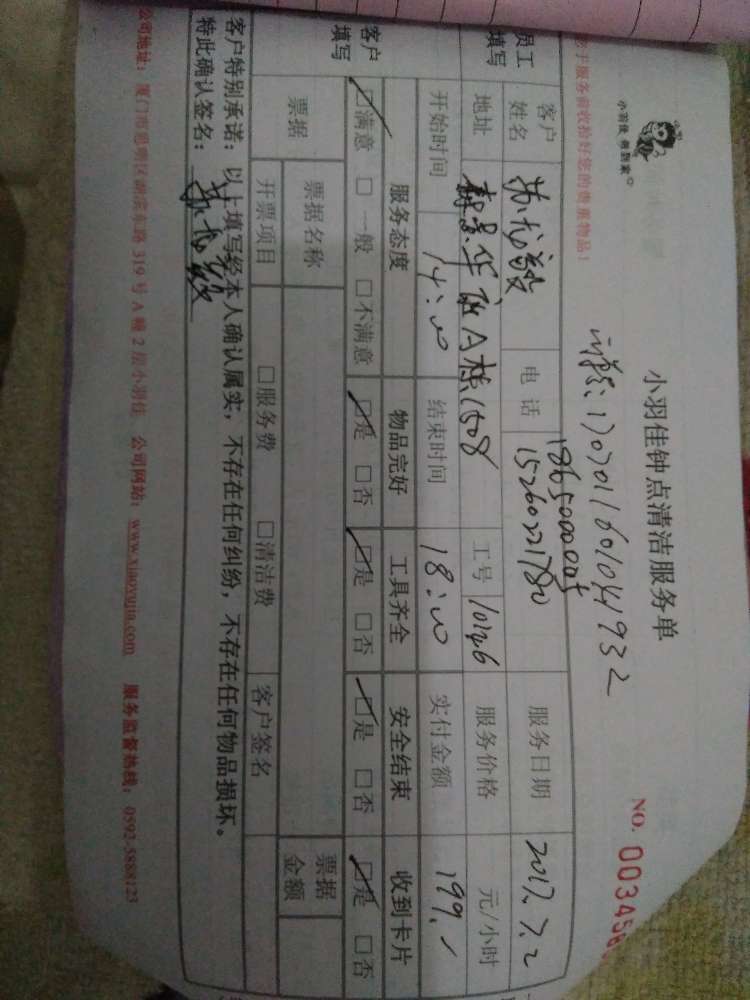 小羽佳 到家
小羽佳钟点清洁服务单
NO. 003458
17070116010411932
服务前收拾好您的贵重物品！
员工填写
客户姓名
电话 18650000005
15260221780
服务日期 2017.7.2
地址 华 A栋1508
工号
服务价格 元/小时
开始时间 14:00
结束时间 18:00
实付金额 199.
客户填写
服务态度 物品完好 工具齐全 安全结束 收到卡片
☑满意 □一般 □不满意 ☑是 □否 ☑是 □否 ☑是 □否 ☑是 □否
票据
票据名称
票据金额
开票项目 □服务费 □清洁费 客户签名
客户特别承诺：以上填写经本人确认属实，不存在任何纠纷，不存在任何物品损坏。
特此确认签名：
公司地址：厦门市思明区湖滨东路 319 号 A 幢 2 层小羽佳 公司网站：www.xiaoyujia.com 服务监督热线：0592-5888123